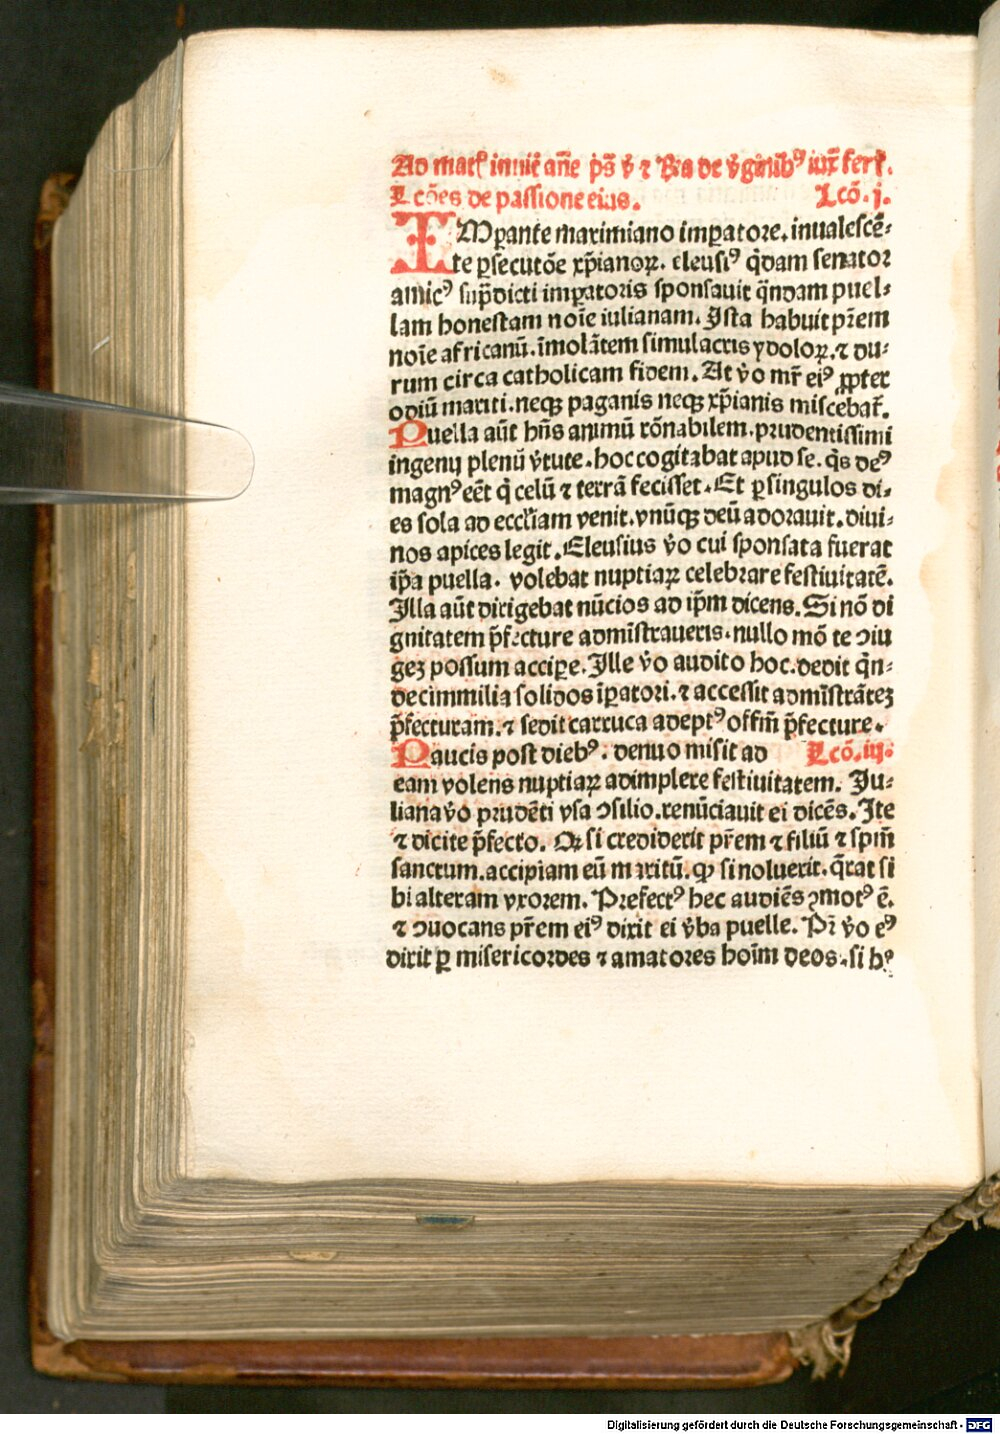 Ad mat̕ inuit̄ añe p̄s v̄ ⁊ Ra de v̄ginib⁹ iux̄ ferī.
Lc̄oes de passione eius. Lcō. j.
IMꝑante maximiano imꝑatore. inualescē-
te ꝑsecutōe xp̄ianoꝝ. eleusi⁹ q̄dam senator
amic⁹ sup̄dicti imꝑatoris sponsauit q̄ndam puel-
lam honestam noīe iulianam. Ista habuit pr̄em
noīe africanū. īmolātem simulacris ydoloꝝ. ⁊ du-
rum circa catholicam fidem. At v̄o mr̄ ei⁹ ꝓpter
odiū mariti. neqꝫ paganis neqꝫ xp̄ianis miscebat̄.
Puella aūt hn̄s animū rōnabilem. prudentissimi
ingenij plenū v̄tute. hoc cogitabat apud se. q̄s de⁹
magn⁹ eēt q̄ celū ⁊ terrā fecisset. Et ꝑ singulos di-
es sola ad eccl̄iam venit. vnūqꝫ deū adorauit. diui-
nos apices legit. Eleusius v̄o cui sponsata fuerat
ip̄a puella. volebat nuptiaꝝ celebrare festiuitatē.
Illa aūt dirigebat nūcios ad ip̄m dicens. Si nō di
gnitatem p̄fecture admīstraueris. nullo mō te ɔiu
geꝫ possum acciꝑe. Ille v̄o audito hoc. dedit q̄n-
decimmilia solidos īꝑatori. ⁊ accessit admīstrāteꝫ
p̄fecturam. ⁊ sedit carruca adept⁹ offm̄ p̄fecture.
Paucis post dieb⁹. denuo misit ad Lcō. iij.
eam volens nuptiaꝝ adimplere festiuitatem. Ju-
liana v̄o prudēti vsa ɔsilio. renūciauit ei dicēs. Ite
⁊ dicite p̄fecto. Qꝛ si crediderit pr̄em ⁊ filiū ⁊ spm̄
sanctum. accipiam eū maritū. ꝙ si noluerit. q̄rat si
bi alteram vxorem. Prefect⁹ hec audiēs ɔmot⁹ ē.
⁊ ɔuocans pr̄em ei⁹ dixit ei v̄ba puelle. Pr̄ v̄o e⁹
dixit ꝑ misericordes ⁊ amatores hoīm deos. si h⁹
Digitalisierung gefördert durch die Deutsche Forschungsgemeinschaft - DFG